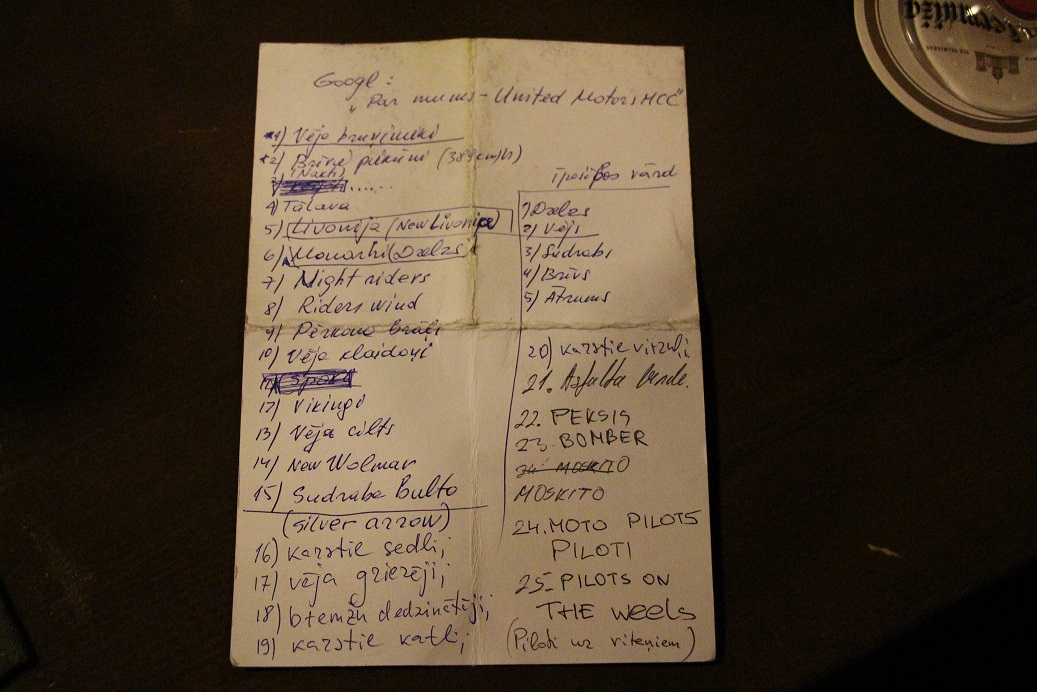 Googl:
"Par mums - United Motors MCC"
*1) Vēja bruņinieki
*2) Brīvie piekūni (389km/h)
(Nakts)
3) ......
4) Tālava
5) Livonija (New Livonija)
6) Monarhi (Dzelzs)
7) Night riders
8) Riders wind
9) Pērkona Brāļi
10) Vēja klaidoņi
11)
12) Vikingi
13) Vēja cilts
14) New Wolmar
15) Sudraba Bulta
(silver arrow)
16) karstie sedli;
17) vēja griezēji;
18) bremžu dedzinātāji;
19) karstie katli;
vārd
1) Dzelzs
2) Vēji
3) Sudrabs
4) Brīvs
5) Ātrums
20) karstie virzuļi;
21. Asfalta
22. PEKSIS
23. BOMBER
24. MOSKITO
MOSKITO
24. MOTO PILOTS
PILOTI
25. PILOTS ON
THE weels
(Piloti uz riteņiem)